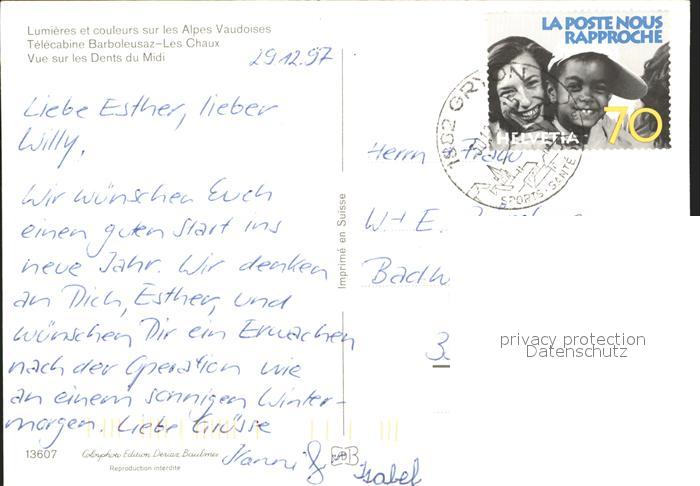 Lumières et couleurs sur les Alpes Vaudoises
Télécabine Barboleusaz–Les Chaux
Vue sur les Dents du Midi
29.12.97
Liebe Esther, lieber
Willy,
Wir wünschen Euch
einen guten Start ins
neue Jahr. Wir denken
an Dich, Esther, und
wünschen Dir ein Erwachen
nach der Operation wie
an einem sonnigen Winter-
morgen. Liebe Grüsse
Isabel
13607
Colorphoto Edition Deriaz Baulmes
Reproduction interdite
Imprimé en Suisse
LA POSTE NOUS
RAPPROCHE
HELVETIA
70
1882 GRYON
SPORTS-SANTÉ
Herrn Frau
W.+E.
Badw
3
privacy protection
Datenschutz